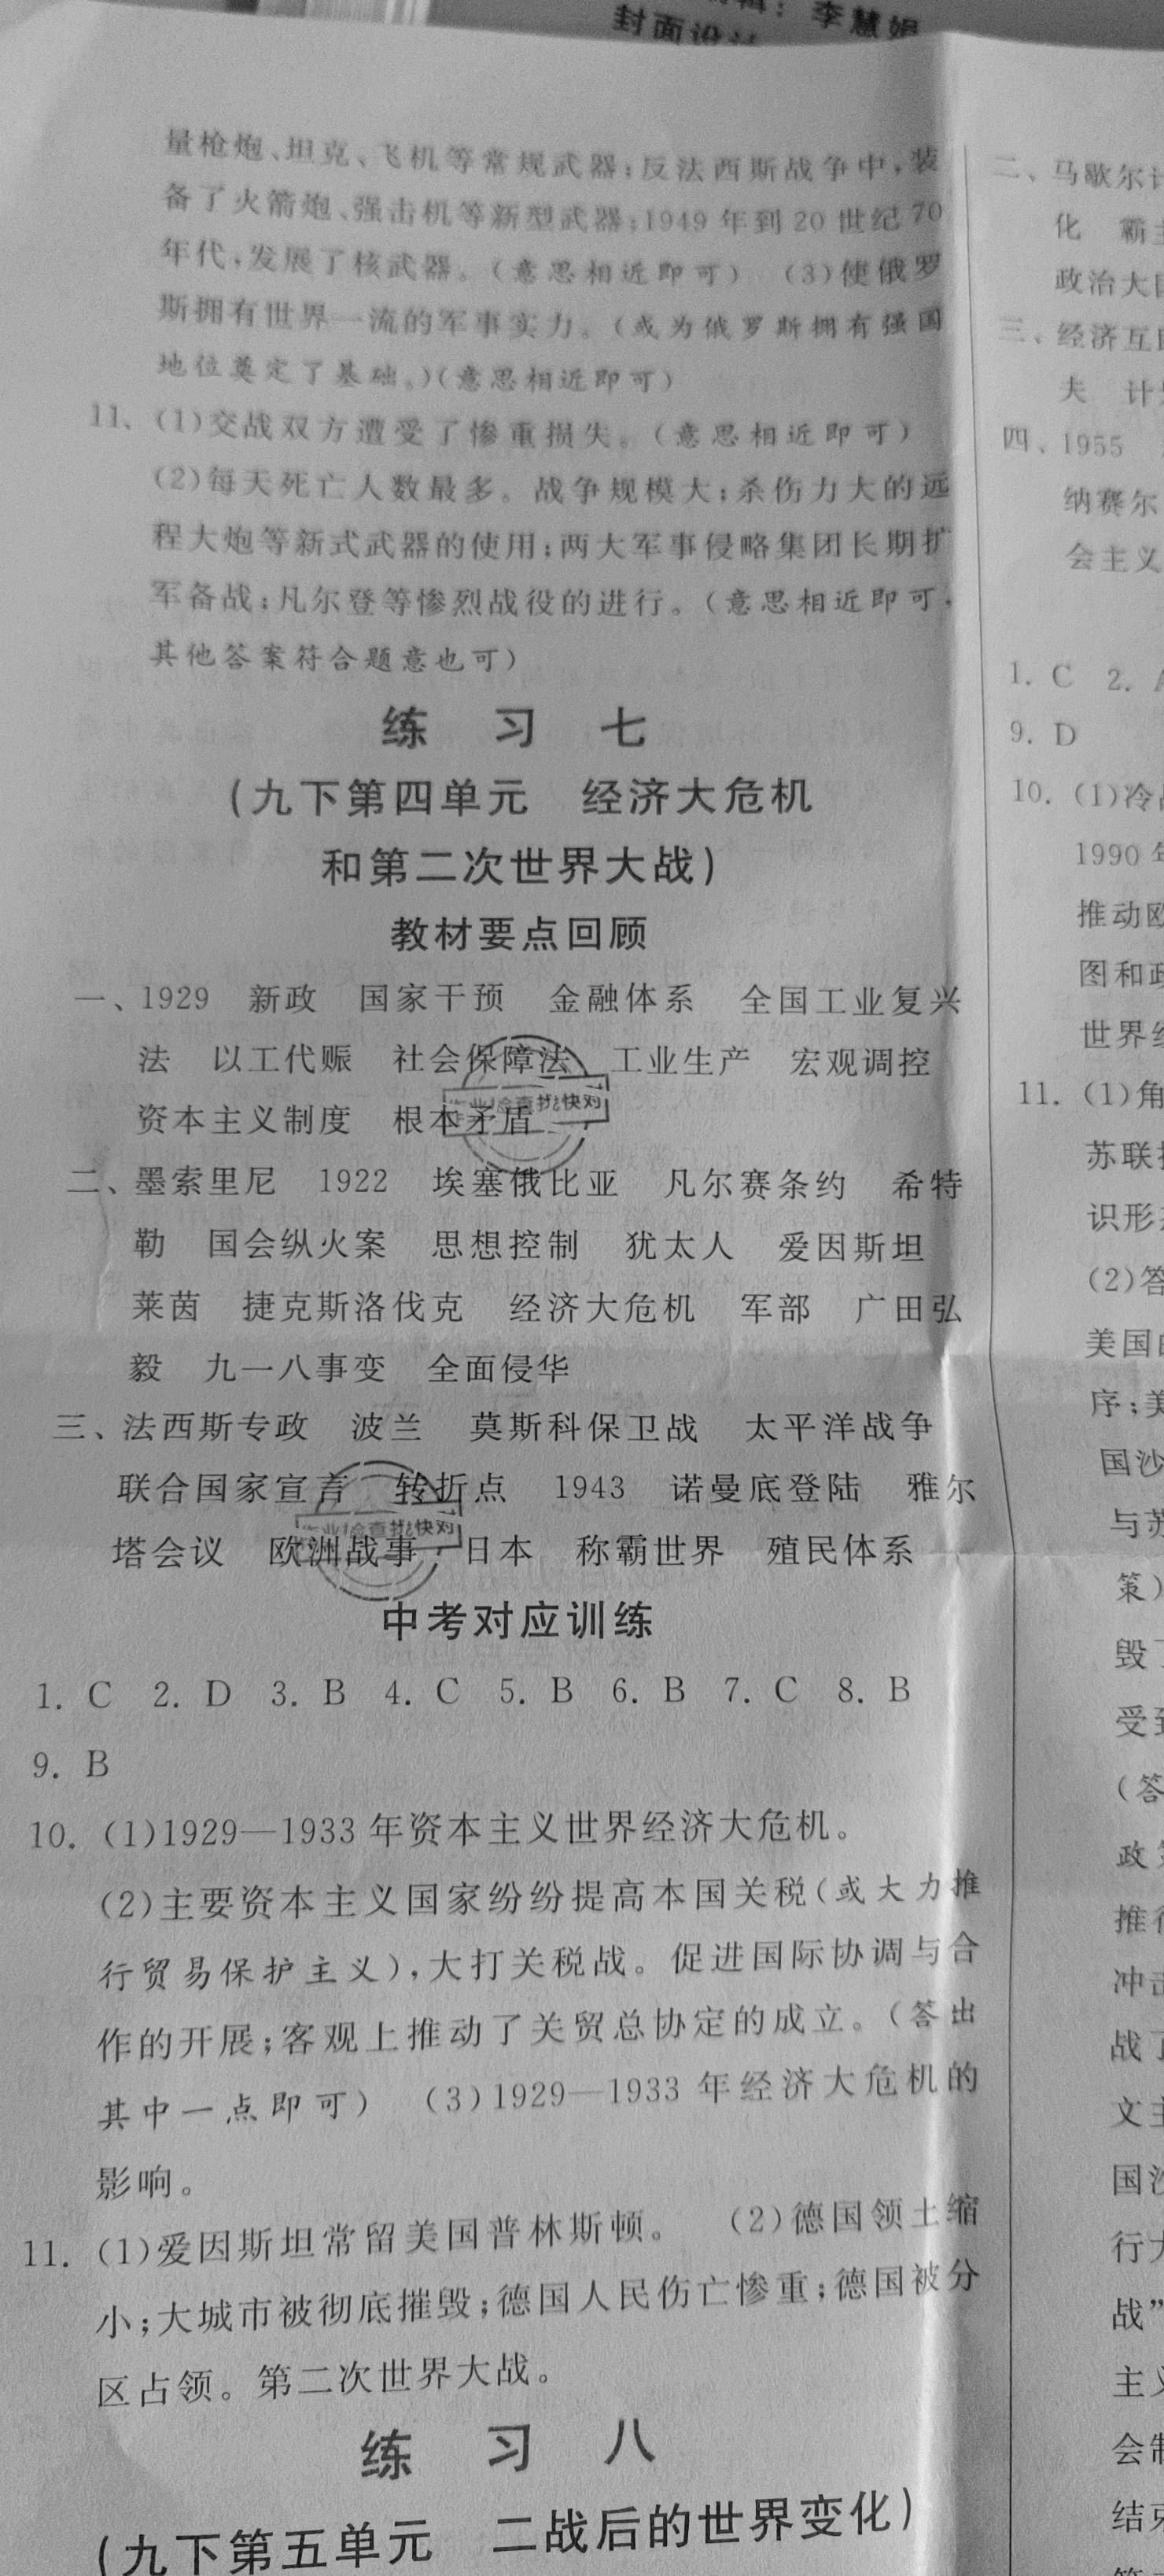 李慧娟
封面设计
量枪炮、坦克、飞机等常规武器;反法西斯战争中,装
备了火箭炮、强击机等新型武器;1949年到20世纪70
年代,发展了核武器。(意思相近即可) (3)使俄罗
斯拥有世界一流的军事实力。(或为俄罗斯拥有强国
地位奠定了基础。)(意思相近即可)
11、(1)交战双方遭受了惨重损失。(意思相近即可)
(2)每天死亡人数最多。战争规模大;杀伤力大的远
程大炮等新式武器的使用;两大军事侵略集团长期扩
军备战;凡尔登等惨烈战役的进行。(意思相近即可,
其他答案符合题意也可)
练 习 七
(九下第四单元 经济大危机
和第二次世界大战)
教材要点回顾
一、1929 新政 国家干预 金融体系 全国工业复兴
法 以工代赈 社会保障法 工业生产 宏观调控
资本主义制度 根本矛盾
二、墨索里尼 1922 埃塞俄比亚 凡尔赛条约 希特
勒 国会纵火案 思想控制 犹太人 爱因斯坦
莱茵 捷克斯洛伐克 经济大危机 军部 广田弘
毅 九一八事变 全面侵华
三、法西斯专政 波兰 莫斯科保卫战 太平洋战争
联合国家宣言 转折点 1943 诺曼底登陆 雅尔
塔会议 欧洲战事 日本 称霸世界 殖民体系
中考对应训练
1. C 2. D 3. B 4. C 5. B 6. B 7. C 8. B
9. B
10. (1)1929—1933年资本主义世界经济大危机。
(2)主要资本主义国家纷纷提高本国关税(或大力推
行贸易保护主义),大打关税战。促进国际协调与合
作的开展;客观上推动了关贸总协定的成立。(答出
其中一点即可) (3)1929—1933年经济大危机的
影响。
11. (1)爱因斯坦常留美国普林斯顿。 (2)德国领土缩
小;大城市被彻底摧毁;德国人民伤亡惨重;德国被分
区占领。第二次世界大战。
练 习 八
(九下第五单元 二战后的世界变化)
二、马歇尔
化 霸
政治大
三、经济互
夫 计
四、1955
纳赛尔
会主义
1. C 2.
9. D
10. (1)冷
1990
推动欧
图和政
世界经
11. (1)角
苏联
识形
(2)答
美国
序;美
国沙
与苏
策)
毁
受到
(答
政
推行
冲击
战了
文主
国沙
行大
战”
主义
会制
结束